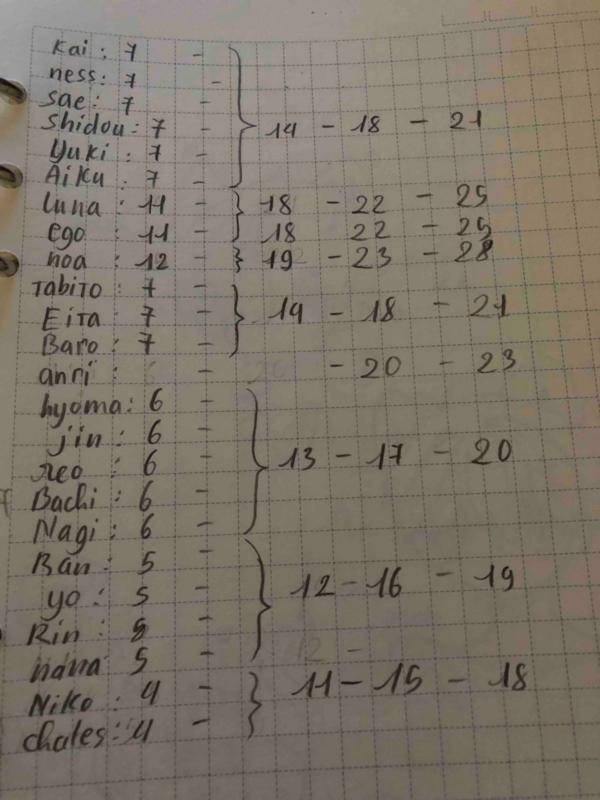 Kai : 7 -
ness : 7 -
Sae : 7 -
Shidou : 7 - } 14 - 18 - 21
Yuki : 7 -
Aiku : 7 -
Luna : 11 - } 18 - 22 - 25
ego : 11 - } 18 22 - 25
noa : 12 - } 19 - 23 - 28
Tabito : 7 -
Eita : 7 - } 14 - 18 - 21
Baro : 7 -
anri : - 20 - 23
hyoma : 6 -
jin : 6 -
reo : 6 - } 13 - 17 - 20
Bachi : 6 -
Nagi : 6 -
Ban : 5 -
yo : 5 - } 12 - 16 - 19
Rin : 5 -
nana : 5 -
Niko : 4 - } 11 - 15 - 18
chales : 4 -